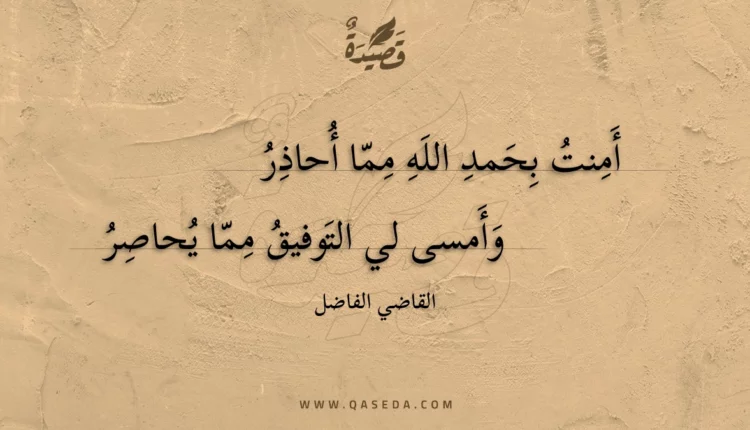 قَصِيدَةٌ
أَمِنتُ بِحَمدِ اللَهِ مِمّا أُحاذِرُ
وَأَمسى لي التَوفيقُ مِمّا يُحاصِرُ
القاضي الفاضل
WWW.QASEDA.COM